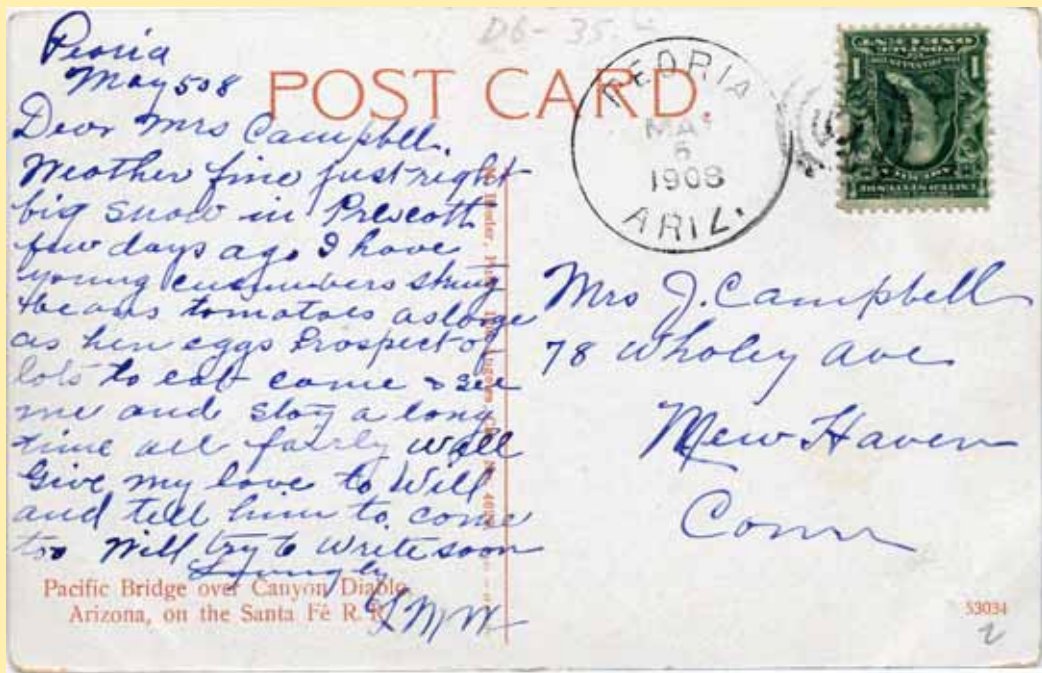 D6-35.
Peoria
May 5 08
POST CARD.
PEORIA
MAY
5
1908
ARIZ.
Dear Mrs Campbell.
Weather fine just right
big snow in Prescott
few days ago I have
young cucumbers string
beans tomatoes as large
as hen eggs Prospect of
lots to eat come & see
me and stay a long
time all fairly well
Give my love to Will
and tell him to come
too Will try to write soon
Lovingly
Mrs J. Campbell
78 Whaley Ave
New Haven
Conn
Pacific Bridge over Canyon Diablo,
Arizona, on the Santa Fé R. R.
53034
2
1
1